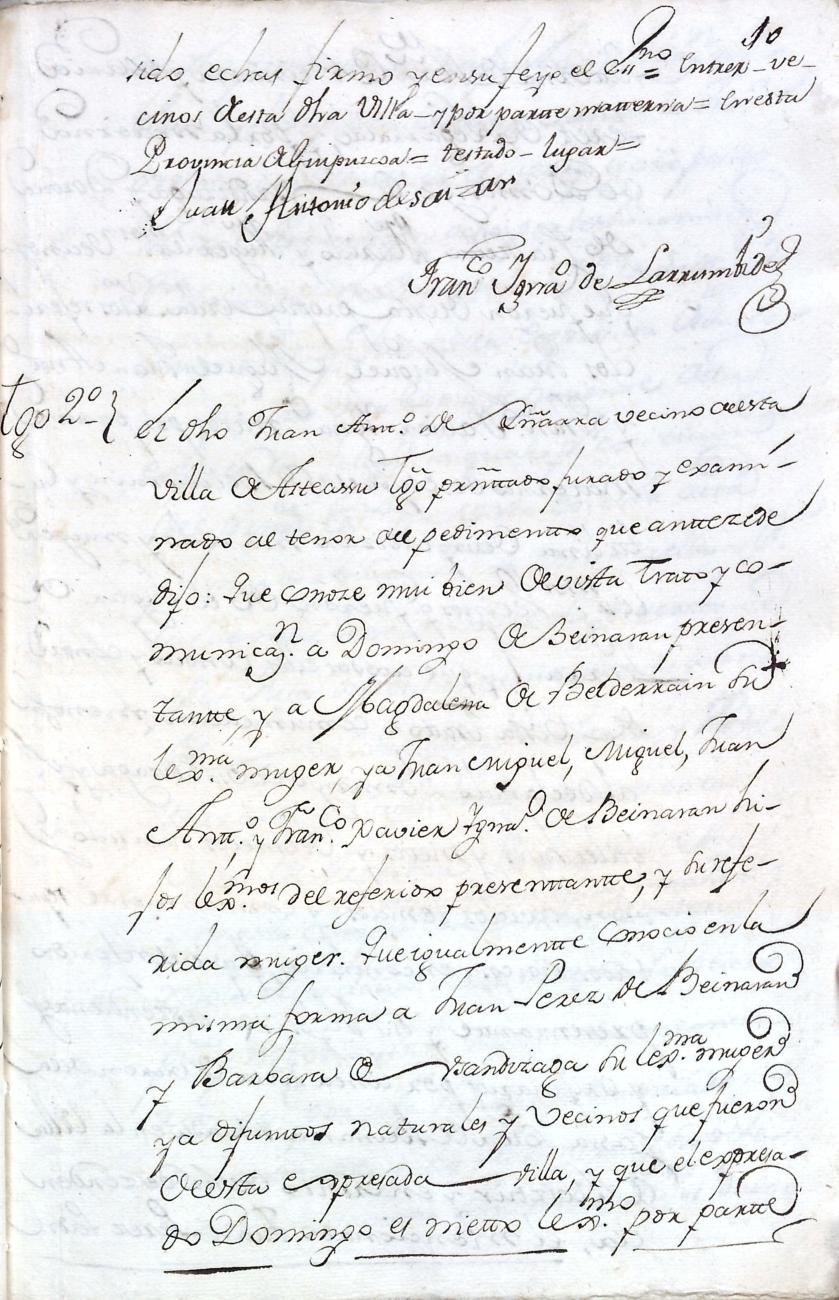 10
sido echas firmo y en su fe yo el Ssno = Entrerr. ve-
cinos de esta dha Villa – y por partte matterna = En esta
Provincia de Guipuzcoa = testado – lugar =
Juan Antonio de Saizar
Franco Ygnao de Larrumbide
tgo 2o
El dho Juan Anto. de Eñarra vecino de esta
villa de Asteassu tgo pressnttado jurado y exami-
nado al tenor del pedimentto que anttezede
dijo: Que conoze mui bien de vista Trato y co-
municazn. a Domingo de Beinaran presen-
tantte, y a Magdalena de Belderrain su
lexma. muger, y a Juan Miguel, Miguel, Juan
Antto. y Franco. Xavier Ygno. de Beinaran hi-
jos lexmos. del referido presenttantte, y su refe-
rida muger. Que igualmentte conocio en la
misma forma a Juan Perez de Beinaran
y Barbara de Yandizaga su lexma. muger
ya difunttos naturales y Vecinos que fueron
de esta expresada villa, y que el expresa-
do Domingo es nietto lexmo. por partte